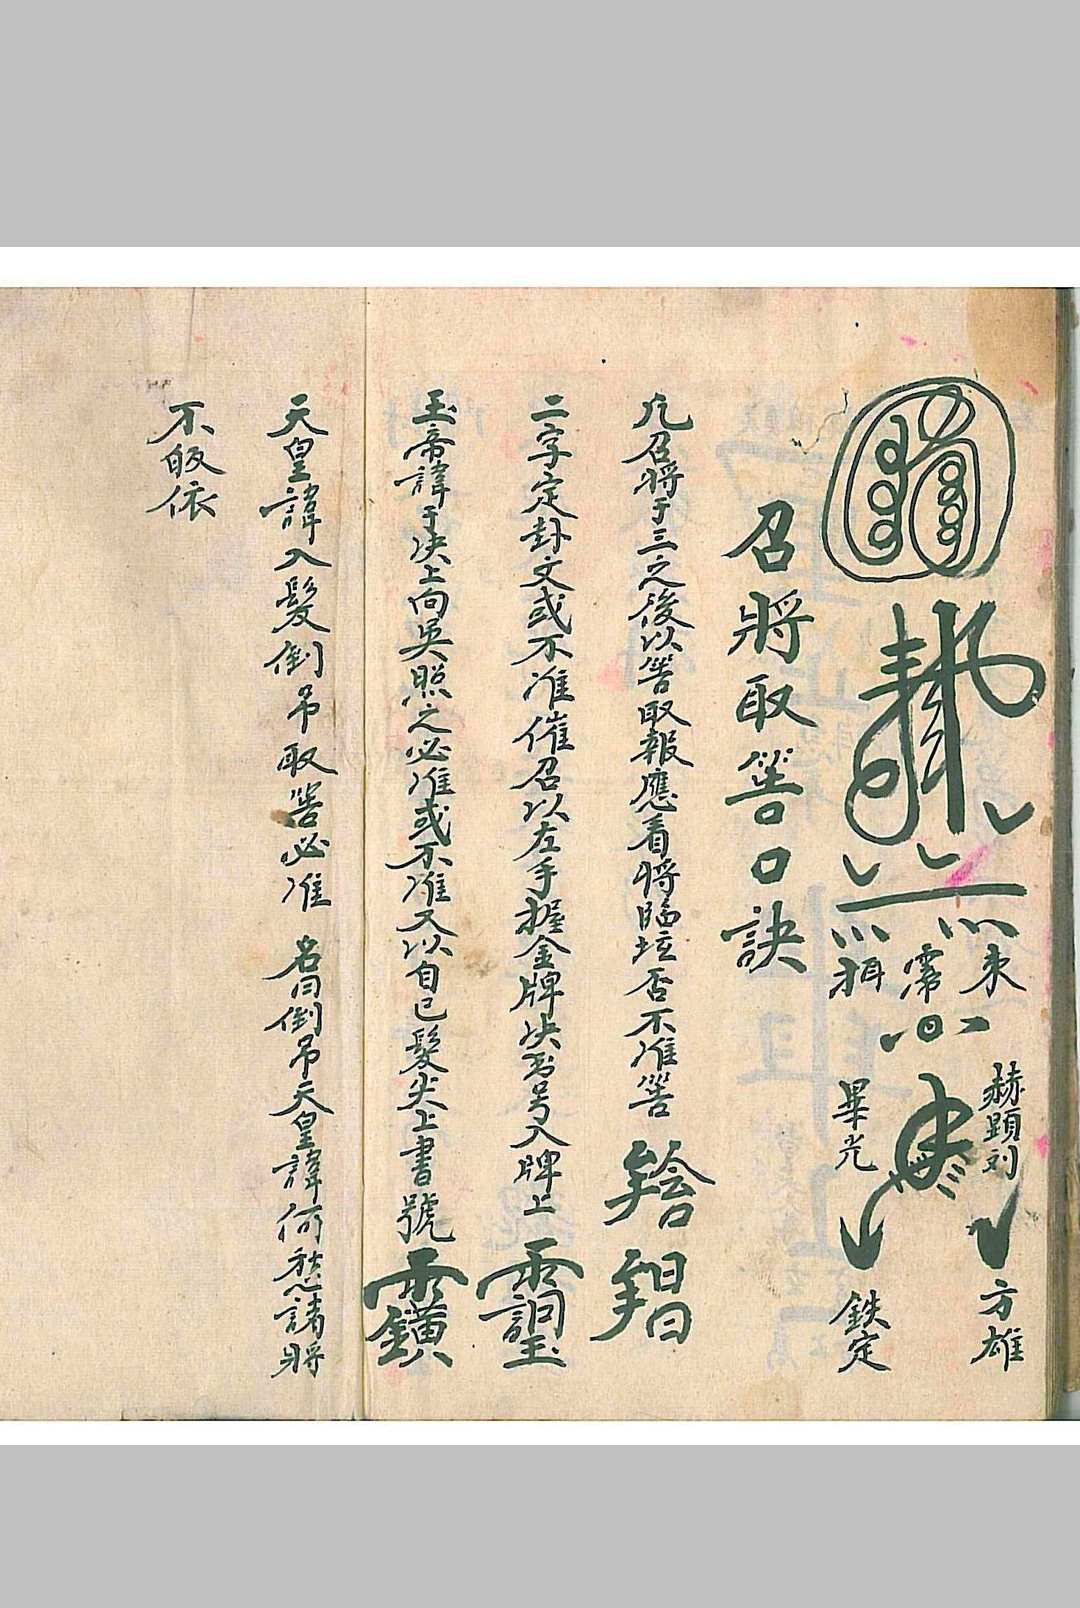 朱
赫顕刘
方雄
畢光
鉄定
召將取筶口訣
凢召將于三之後以筶取報應看將臨坛否不准筶
二字定卦文或不准催召以左手握金牌决 号入牌上
玉帝諱于决上向吳照之必准或不准又以自己髮尖上書號
天皇諱入髮倒吊取筶必准 名曰倒吊天皇諱何愁諸將
不皈依